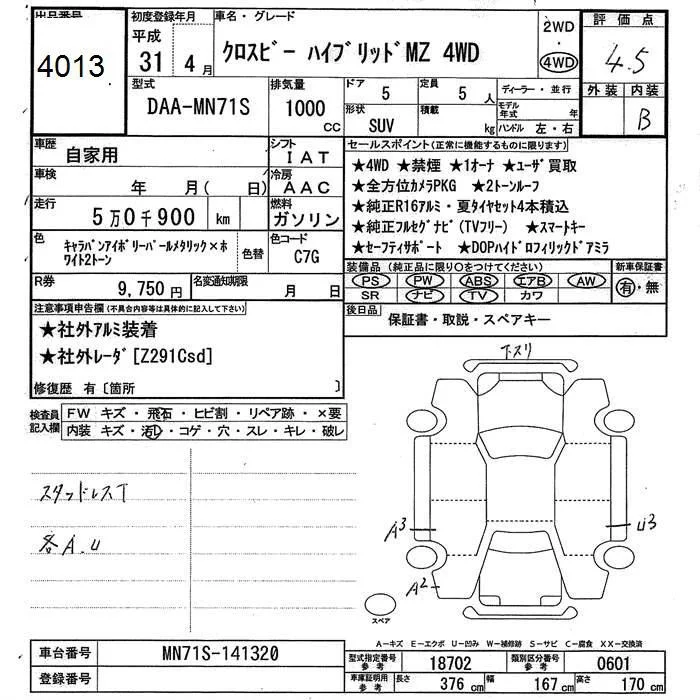 出品番号 初度登録年月 車名・グレード
4013 平成 31年 4月 クロスビー ハイブリッドMZ 4WD 2WD・4WD
評価点 4.5
外装 内装 B
型式 DAA-MN71S 排気量 1000 CC
ドア 5 定員 5人 ディーラー・並行
形状 SUV 積載 kg モデル年式 年
ハンドル 左・右
車歴 自家用 シフト IAT
車検 年 月( 日) 冷房 AAC
走行 5万0千900 km 燃料 ガソリン
色 キャラバンアイボリーパールメタリック×ホワイト2トーン 色替 色コード C7G
R券 9,750円 名変通知期限 月 日
セールスポイント(正常に機能するものに限ります)
★4WD ★禁煙 ★1オーナ ★ユーザ買取
★全方位カメラPKG ★2トーンルーフ
★純正R16アルミ・夏タイヤセット4本積込
★純正フルセグナビ(TVフリー) ★スマートキー
★セーフティサポート ★DOPハイドロフィリックドアミラ
装備品(純正品に限り○をつけてください) 新車保証書
PS PW ABS エアB AW 有・無
SR ナビ TV カワ
後日品 保証書・取説・スペアキー
注意事項申告欄(不具合内容等は具体的に記入して下さい)
★社外アルミ装着
★社外レーダ[Z291Csd]
修復歴 有〔箇所 〕
検査員記入欄 FW キズ・飛石・ヒビ割・リペア跡・×要
内装 キズ・汚れ・コゲ・穴・スレ・キレ・破レ
下スリ
スタッドレスT
各A.U
A3
U3
A2
スペア
A-キズ E-エクボ U-凹み W-補修跡 S-サビ C-腐食 XX-交換済
車台番号 MN71S-141320
登録番号
型式指定番号 参考 18702 類別区分番号 参考 0601
車庫証明用 参考 長さ 376 cm 幅 167 cm 高さ 170 cm